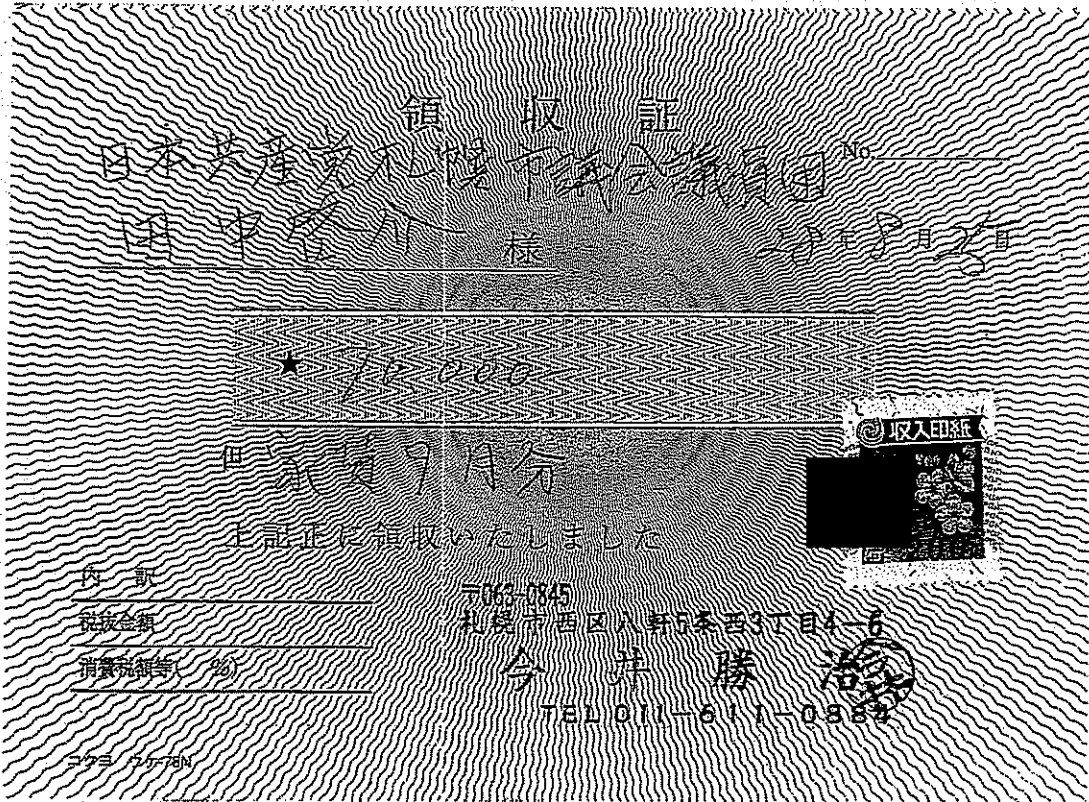 領収証
日本共産党札幌市議会議員団 No
田中啓介 様 28年8月25日
★ 70,000
但 家賃9月分
上記正に領収いたしました
収入印紙
内訳
税抜金額
消費税額等( %)
〒063-0845
札幌市西区八軒5条西3丁目4-6
今井勝治
TEL 011-611-0884
コクヨ ウケ-78N